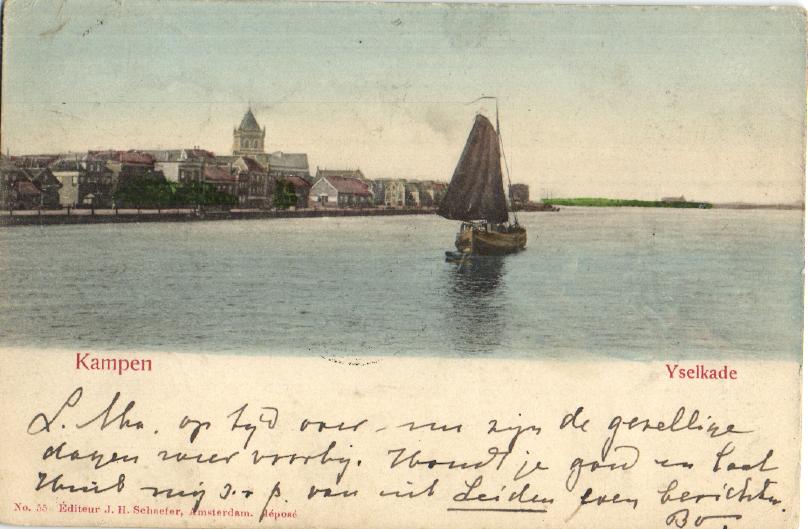 Kampen
Yselkade
L. Ma. op tijd over - nu zijn de gezellige
dagen weer voorbij. Houdt je goed en laat
mij s.v.p. van uit Leiden even berichten.
Bo.
No. 55 Éditeur J. H. Schaefer, Amsterdam. déposé